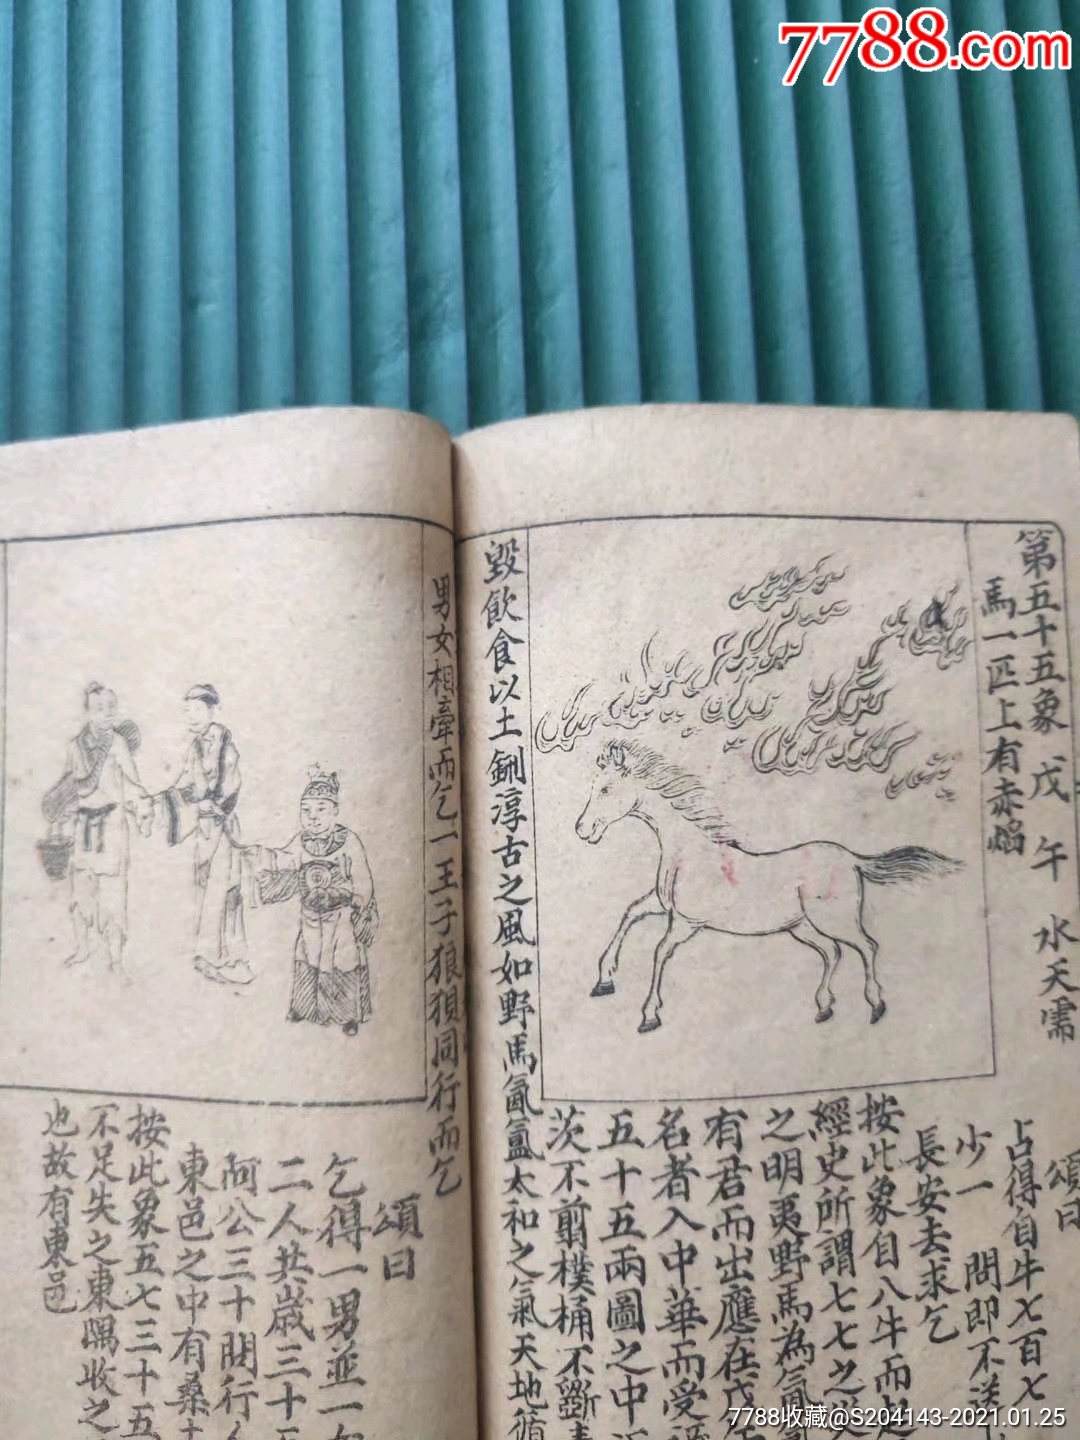 7788.com
第五十五象 戊午 水天需
馬一匹上有赤焰
頌曰
占得自牛七百七
少一 問即不
長安去求乞
按此象自八牛而起
經史所謂七七之
之明夷野馬為氤
有君而出應在戊午
名者入中華而受
五十五兩圖之中
茨不剪樸桶不斵
毀飲食以土鉶淳古之風如野馬氤氳太和之氣天地循
男女相牽而乞一王子狼狽同行而乞
頌曰
乞得一男並一女
二人共歲三十五
阿公三十閗行人
東邑之中有桑
按此象五七三十五
不足失之東隅收之
也故有東邑
7788收藏@S204143-2021.01.25